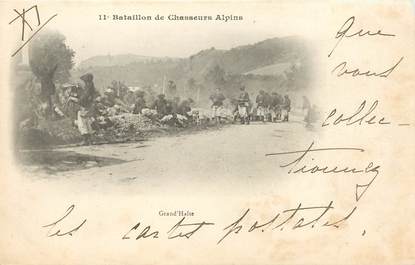 11e Bataillon de Chasseurs Alpins
que
vous
collec-
tionnez
Grand'Halte
les cartes postales